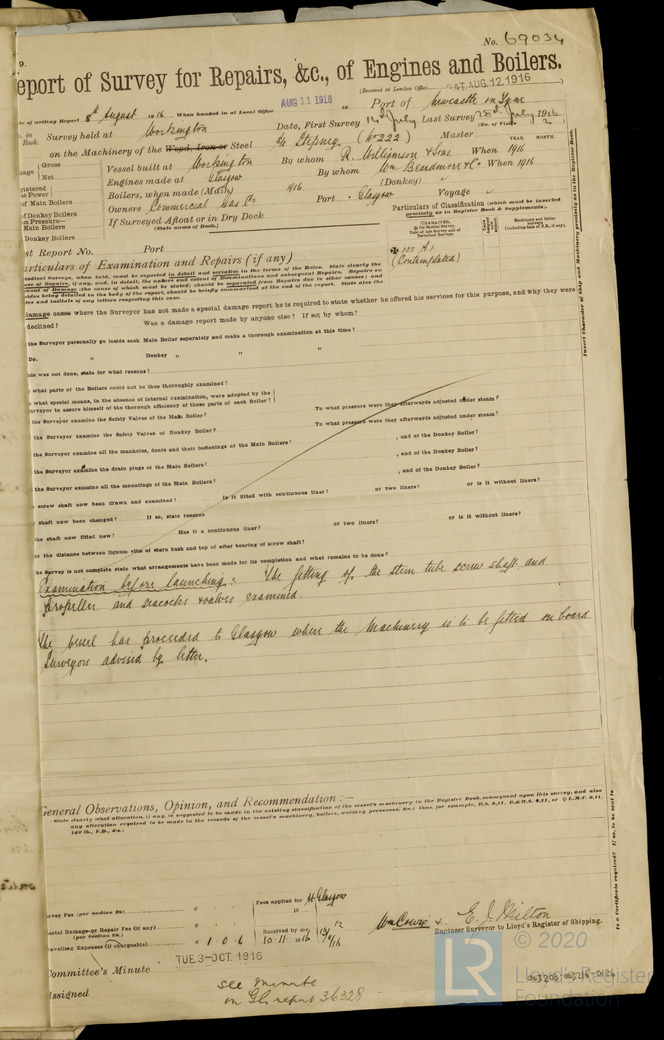 No. 69034
9.
eport of Survey for Repairs, &c., of Engines and Boilers.
(Received at London Office SAT. AUG. 12. 1916
te of writing Report 8th August 1916 When handed in at Local Office AUG 11 1916 Port of Newcastle on Tyne
Survey held at Workington Date, First Survey 14th July Last Survey 28th July 1916
Book.
on the Machinery of the Wood, Iron or Steel Stepney. (No 222) Master
Gross
Net
Vessel built at Workington By whom R. Williamson & Sons. When 1916
Engines made at Glasgow By whom Wm Beardmore & Co When 1916
Boilers, when made (Main) 1916. (Donkey)
Owners Commercial Gas Co Port Glasgow Voyage
If Surveyed Afloat or in Dry Dock
(State name of Dock.)
of Main Boilers
of Donkey Boilers
Main Boilers
Donkey Boilers
Particulars of Classification (which must be inserted
precisely as in Register Book & Supplements).
✠ 100 A1
(Contemplated)
st Report No. Port
articulars of Examination and Repairs (if any)
damage cases where the Surveyor has not made a special damage report he is required to state whether he offered his services for this purpose, and why they were
declined? Was a damage report made by anyone else? If so, by whom?
the Surveyor personally go inside each Main Boiler separately and make a thorough examination at this time?
Do. " Donkey " " "
his was not done, state for what reasons?
what parts of the Boilers could not be thoroughly examined?
what special means, in the absence of internal examination, were adopted by the
urveyor to assure himself of the thorough efficiency of those parts of each Boiler?
the Surveyor examine the Safety Valves of the Main Boiler? To what pressure were they afterwards adjusted under steam?
the Surveyor examine the Safety Valves of Donkey Boiler? To what pressure were they afterwards adjusted under steam?
the Surveyor examine all the manholes, doors and their fastenings of the Main Boilers? , and of the Donkey Boiler?
the Surveyor examine the drain plugs of the Main Boilers? , and of the Donkey Boiler?
the Surveyor examine all the mountings of the Main Boilers? , and of the Donkey Boiler?
screw shaft now been drawn and examined? Is it fitted with continuous liner? or two liners? or is it without liners?
shaft now been changed? If so, state reasons
the shaft now fitted new? Has it a continuous liner? or two liners? or is it without liners?
is the distance between lignum vitæ of stern bush and top of after bearing of screw shaft?
the Survey is not complete state what arrangements have been made for its completion and what remains to be done?
Examination before launching: The fitting of the stern tube screw shaft and
propeller and seacocks & valves examined.
The vessel has proceeded to Glasgow where the Machinery is to be fitted on board
Surveyors advised by letter.
General Observations, Opinion, and Recommendation:—
(State clearly what alteration, if any, is suggested to be made in the existing classification of the vessel's machinery in the Register Book, consequent upon this survey, and also
any alteration required to be made in the records of the vessel's machinery, boilers, working pressures, &c.: thus, for example, B.S. 9,11, B.& M.S. 9,11, or L.M.C. 9,11,
140 lb., F.D., &c.)
urvey Fee (per Section 28)
Fees applied for At Glasgow
19
ecial Damage or Repair Fee (if any)
(per Section 28.)
Received by me,
ravelling Expenses (if chargeable) 1 0 6
10.11.1916
E. J. Hilton
Engineer Surveyor to Lloyd's Register of Shipping.
Committee's Minute TUE 3-OCT. 1916
Assigned see minute
on Gls report 36328
© 2020
Lloyd's Register
Foundation
LR
Insert Character of Ship and Machinery precisely as in the Register Book.